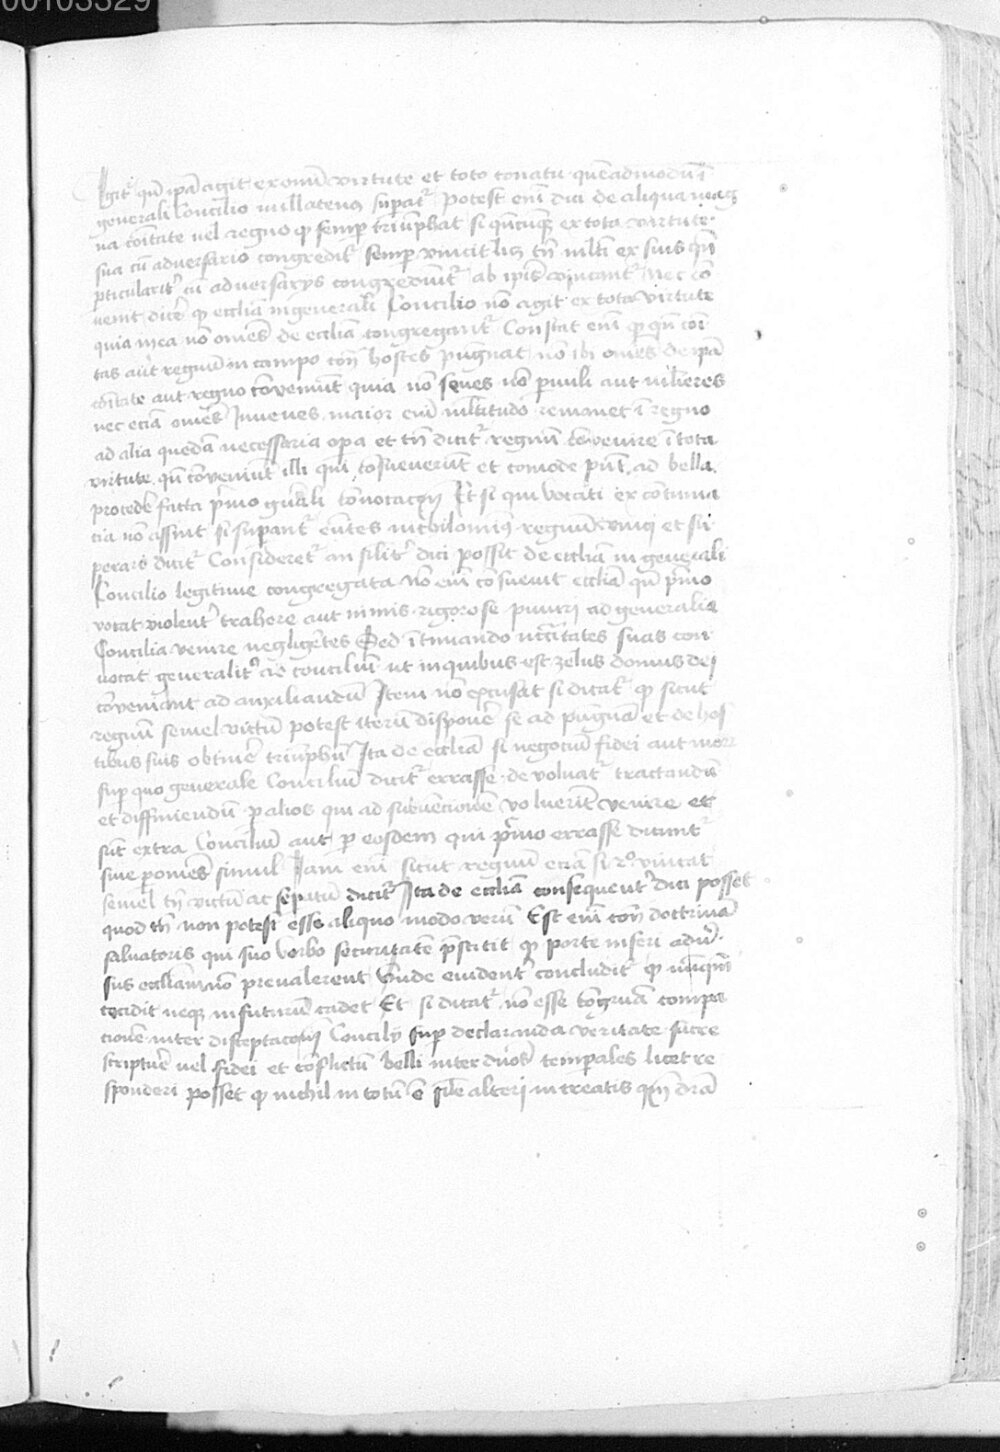 00103329
Agit̃ qñ ip̃a agit ex om̃i virtute et toto conatu quẽadmodũ ĩ
generali Concilio nullatenus sup̃at̃ Potest em̃ dici de aliqua mag
na cõitate uel regno ꝙ semp triũphat si qñcũqꝫ ex tota virtute
sua cũ adversario congredit̃ semp vincit licꝫ tñ mlti ex suis qñ
pticularit̃ cũ adversarys congrediũt̃ ab ip̃is vincant̃ Nec cõ
uenit dicẽ ꝙ ecclia in generali Concilio nõ agit ex tota virtute
quia in ea nõ om̃es de ecclia congregant̃ Constat em̃ ꝙ qñ cõi
tas aut regnũ in campo cõt̃ hostes pugnat nõ ibi om̃es de ip̃a
cõitate aut regno cõveniũt quia nõ senes nõ puuli aut mlieres
nec eciã om̃es Iuvenes maior em̃ mltitudo remanet ĩ regno
ad alia quedã necessaria opa et tñ dicit̃ regnũ cõvenire ĩ tota
virtute qñ cõveniũt illi qui cõsueverũt et comode pñt ad bella
procedẽ facta p̃mo gñali convocacõe Et si qui vocati ex cõtuma
cia nõ assint si supant̃ eũtes nichilomiꝰ regnũ vinci et su
perari dicit̃ Consideret̃ an silit̃ dici possit de ecclia in generali
Concilio legitime congregata nõ em̃ cõsuevit ecclia qñ p̃mo
vocat violent̃ trahere aut nimis rigorose puniri ad generalia
Concilia venire negligẽtes Sed ĩtimando necc̃itates suas con
uocat generalit̃ ad conciliũ ut in quibus est zelus domus dei
cõveniant ad auxiliandũ Item nõ excusat si dicat̃ ꝙ sicut
regnũ semel victũ potest iterũ disponẽ se ad pugnã et de hos
tibus suis obtinẽ triũphũ Ita de ecclia si negociũ fidei aut morũ
sup quo generale Conciliũ dicit̃ errasse devoluat̃ tractandũ
et diffiniendũ p alios qui ad subvencionẽ voluerit venire et
sũt extra Conciliũ aut p eosdem qui p̃mo errasse dicunt̃
sive p om̃es simul Iam em̃ sicut regnũ eciã si 2o vincat
semel tñ victũ ac supatũ dicit̃ Ita de ecclia consequent̃ dici posset
quod tñ non potest esse aliquo modo verũ Est em̃ cõt̃ doctrinã
salvatoris qui suo verbo securitatẽ p̃stitit ꝙ porte inferi adũ
sus eccliam nõ prevalerent Unde evident̃ concludit̃ ꝙ nũqm̃
cecidit neqꝫ in futurũ cadet Et si dicat̃ nõ esse congruã compa
cionẽ inter disceptacõnẽ Concilij sup declaranda veritate sacre
scripture vel fidei et cõflictũ belli inter duos temporales licet re
sponderi posset ꝙ nichil in totũ ẽ sile alteri in creatis qm̃ drã